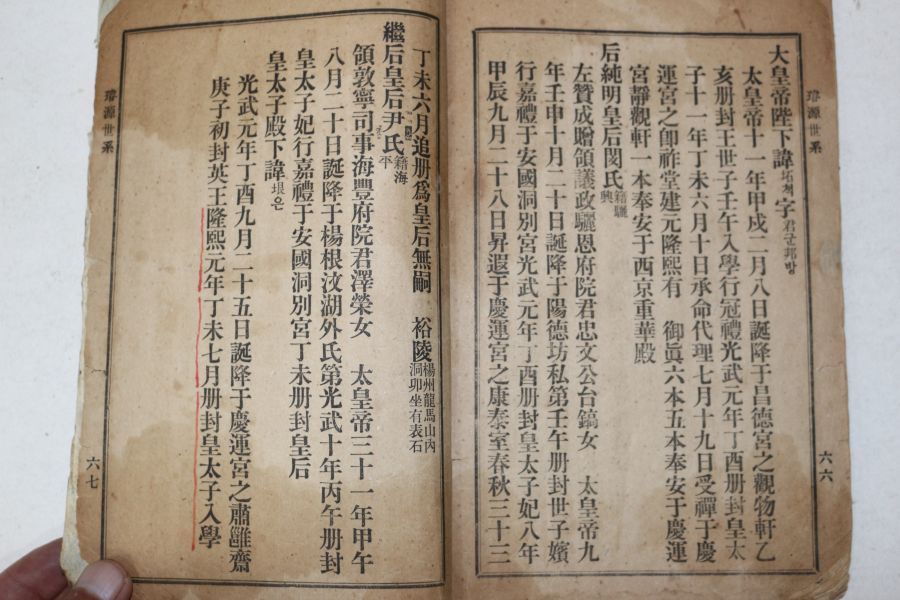 大皇帝陛下諱坧쳑字君군邦방
太皇帝十一年甲戌二月八日誕降于昌德宮之觀物軒乙
亥册封王世子壬午入學行冠禮光武元年丁酉册封皇太
子十一年丁未六月十日承命代理七月十九日受禪于慶
運宮之卽祚堂建元隆熙有 御眞六本五本奉安于慶運
宮靜觀軒一本奉安于西京重華殿
后純明皇后閔氏籍驪興
左贊成贈領議政驪恩府院君忠文公台鎬女 太皇帝九
年壬申十月二十日誕降于陽德坊私第壬午册封世子嬪
行嘉禮于安國洞別宮光武元年丁酉册封皇太子妃八年
甲辰九月二十八日昇遐于慶運宮之康泰室春秋三十三
璿源世系
六六
丁未六月追册爲皇后無嗣 裕陵楊州龍馬山內洞卯坐有表石
繼后皇后尹氏籍海平
領敦寧司事海豐府院君澤榮女 太皇帝三十一年甲午
八月二十日誕降于楊根汶湖外氏第光武十年丙午册封
皇太子妃行嘉禮于安國洞別宮丁未册封皇后
皇太子殿下諱垠은
光武元年丁酉九月二十五日誕降于慶運宮之肅雝齋
庚子初封英王隆熙元年丁未七月册封皇太子入學
璿源世系
六七